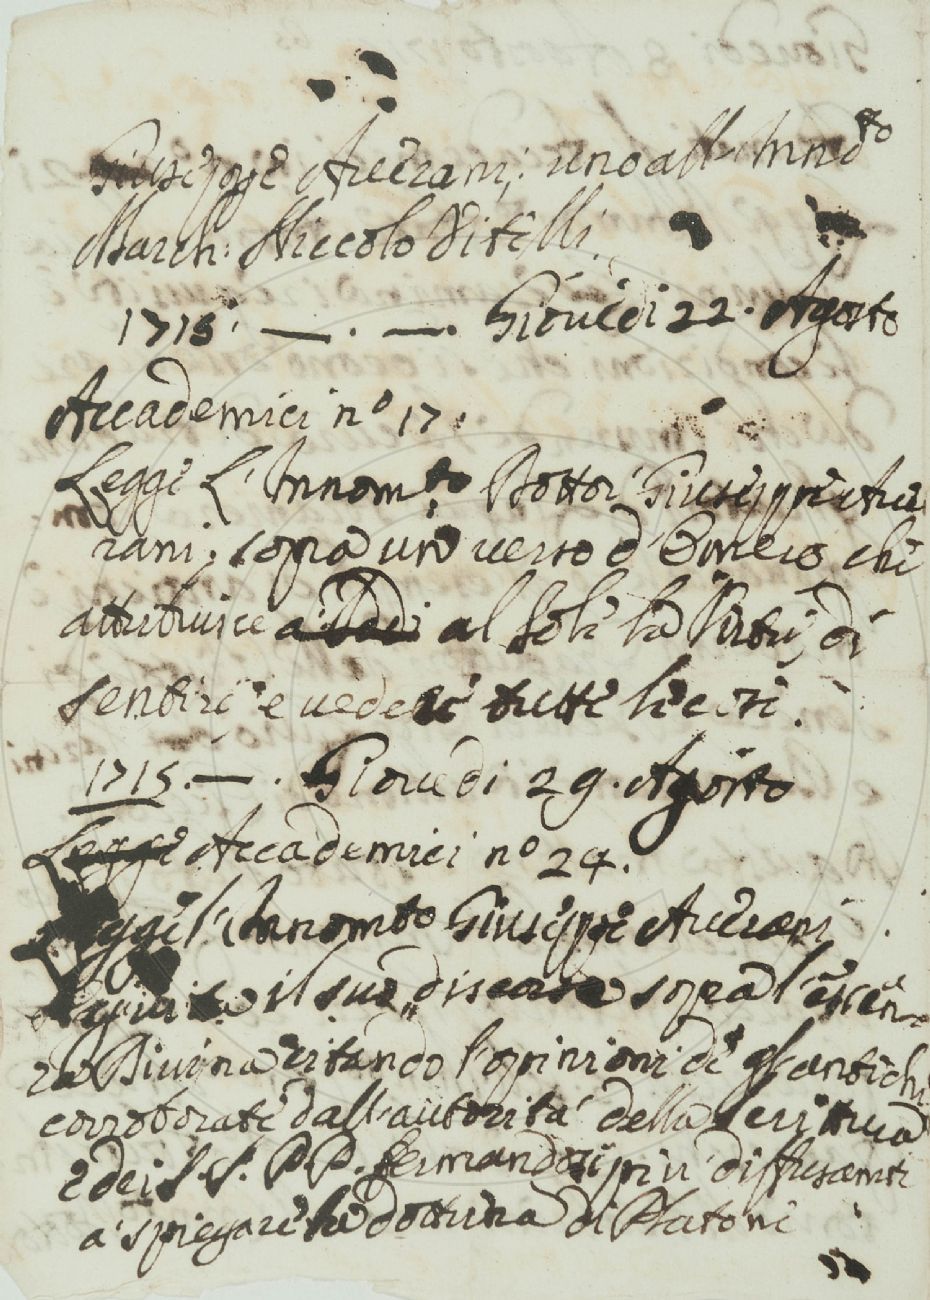 Giuseppe Averani; uno all' Innōto
March: Niccolo Vitelli.
1715. —. —. Giovedi 22. Agosto
Accademici nº 17.
Legge l'Innomto Dottor Giuseppe Ave
rani; sopra un verso d'Omero che
attribuisce al Sole la Virtù di
sentire e vedere tutte le cose.
1715. —. Giovedi 29. Agosto
Legge Accademici nº 24.
l'Innomto Giuseppe Averani
il suo discorso sopra l'essen-
za Divina citando l'opinioni de gl'antichi
corroborate dall'autorità della scrittura
e dei S.S. P.P. fermandosi più diffusamte
a spiegare la dottrina di Platone